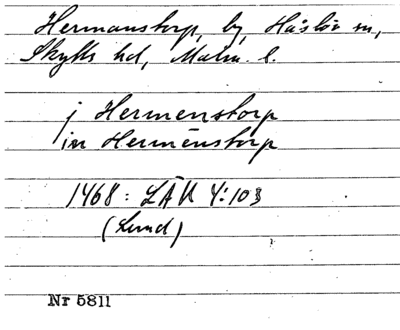 Hermanstorp, by, Håslöv sn,
Skytts hd, Malm. l.
j Hermenstorp
in Hermēnstorp
1468: LÄU 4:103
(Lund)
Nr 5811